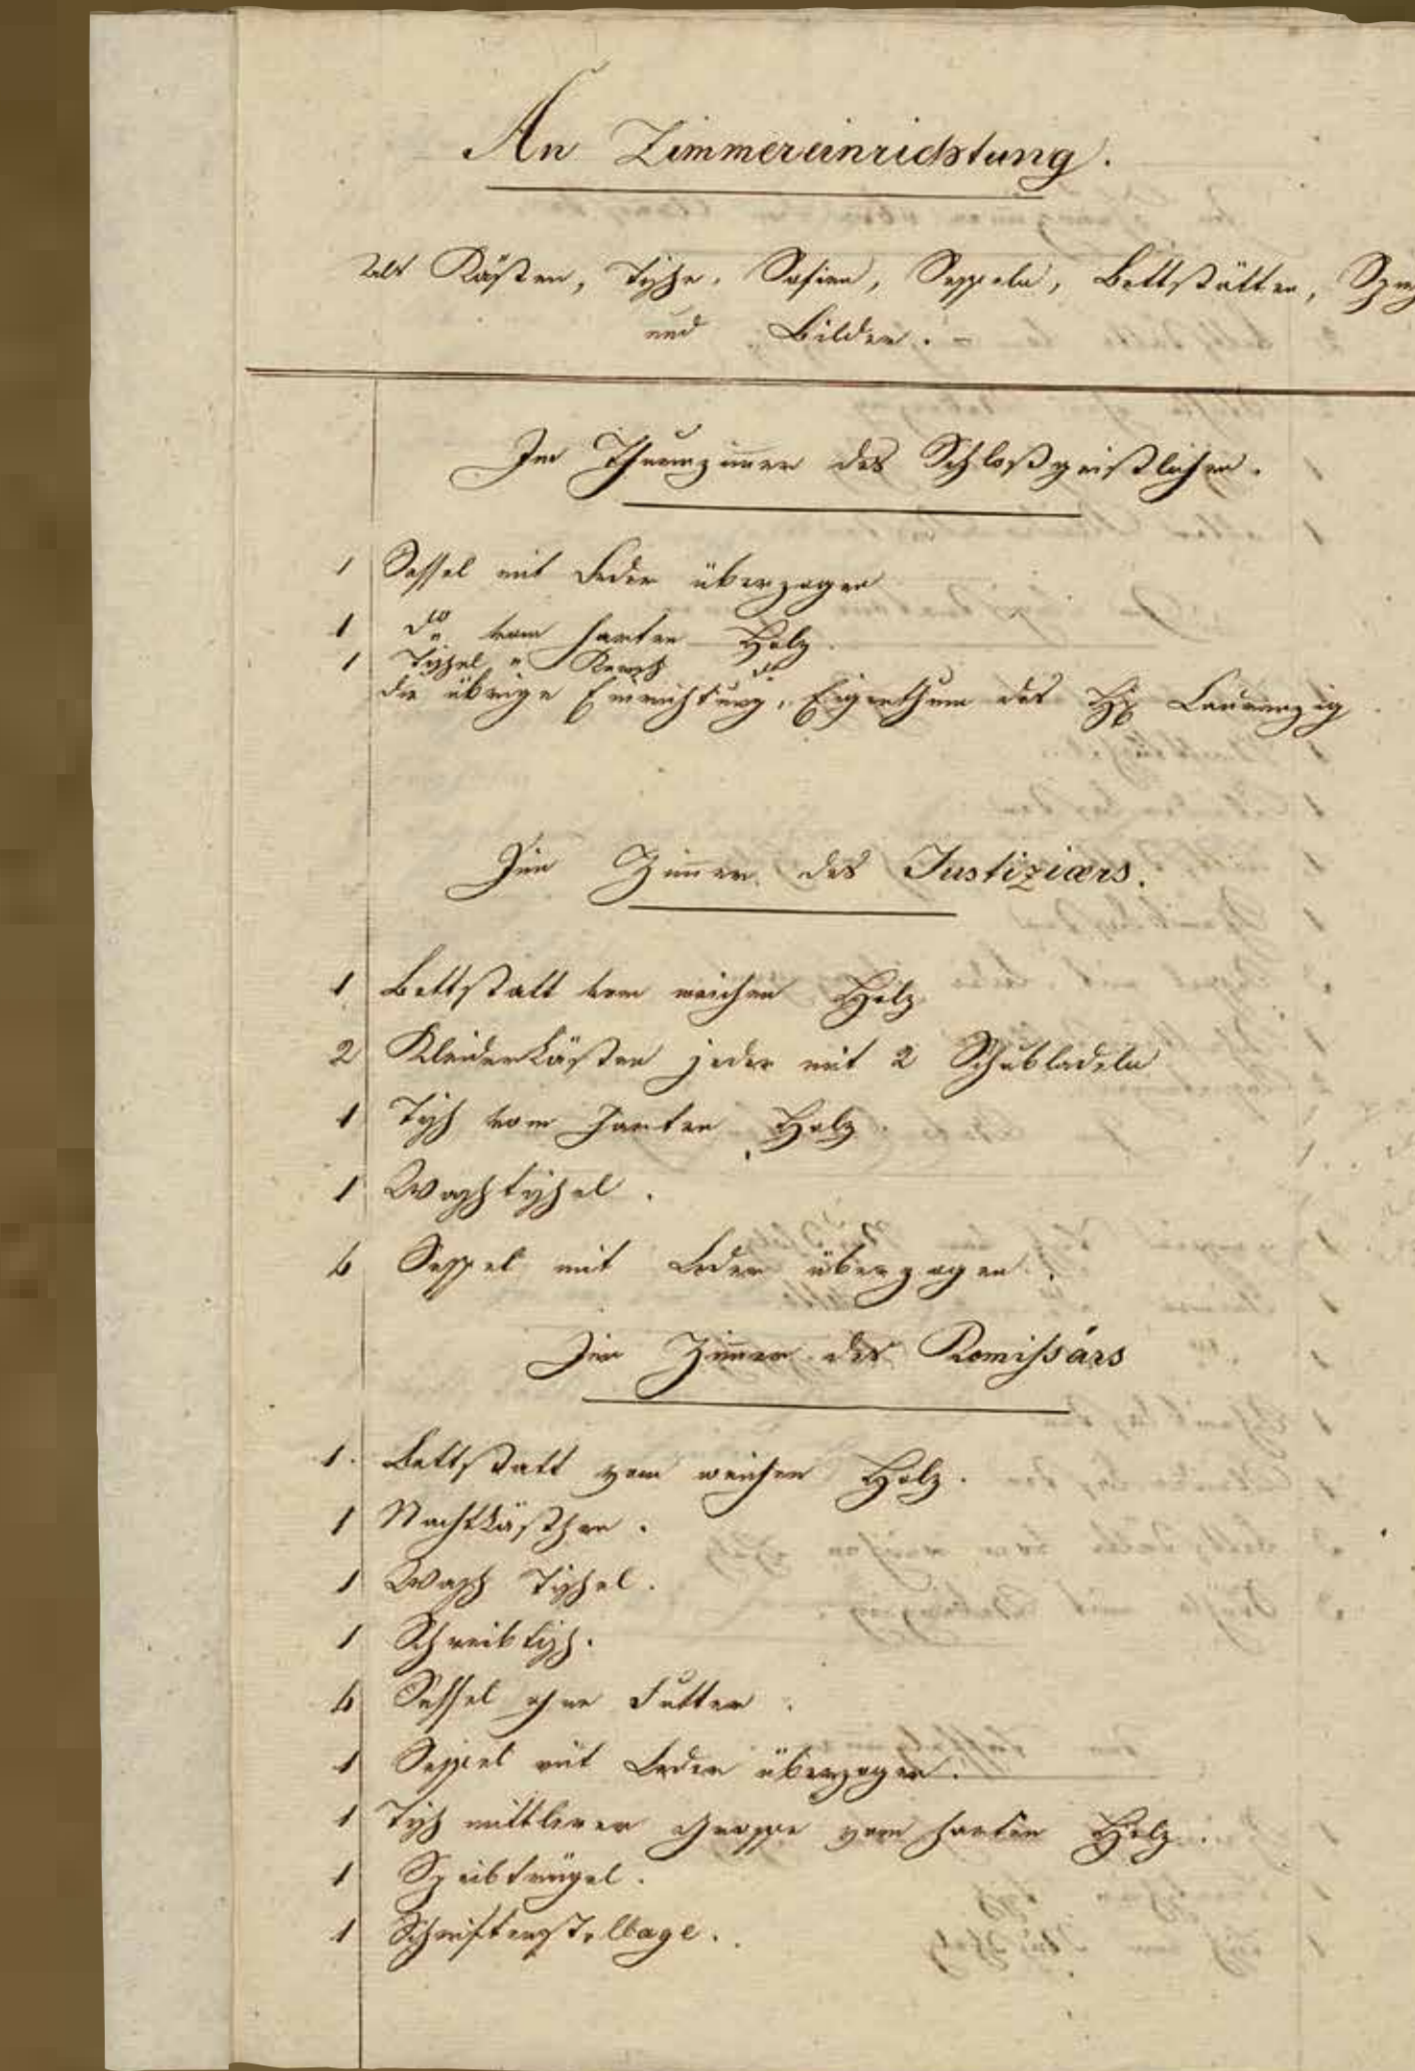 An Zimmereinrichtung.
Als Kästen, Tische, Sofien, Sesseln, Bettstätten,
und Bilder.
Im Thurmzimmer des Schloßgeistlichen.
1 Sessel mit Leder überzogen
1 dto vom harten Holz.
1 Tischel " "
die übrige Einrichtung, Eigenthum des H
Im Zimmer des Justiziärs.
1 Bettstatt vom weichen Holz
2 Kleiderkästen jeder mit 2 Schubladeln
1 Tisch vom harten Holz.
1 Waschtischel.
6 Sessel mit Leder überzogen.
Im Zimmer des Komissärs
1. Bettstatt vom weichen Holz.
1 Nachtkästchen.
1 Wasch Tischel.
1 Schreibtisch.
6 Sessel ohne Futter.
1 Sessel mit Leder überzogen.
1 Tisch mittlerer Grosse vom harten Holz.
1 Speibtrügel.
1 Schriftenstellage.